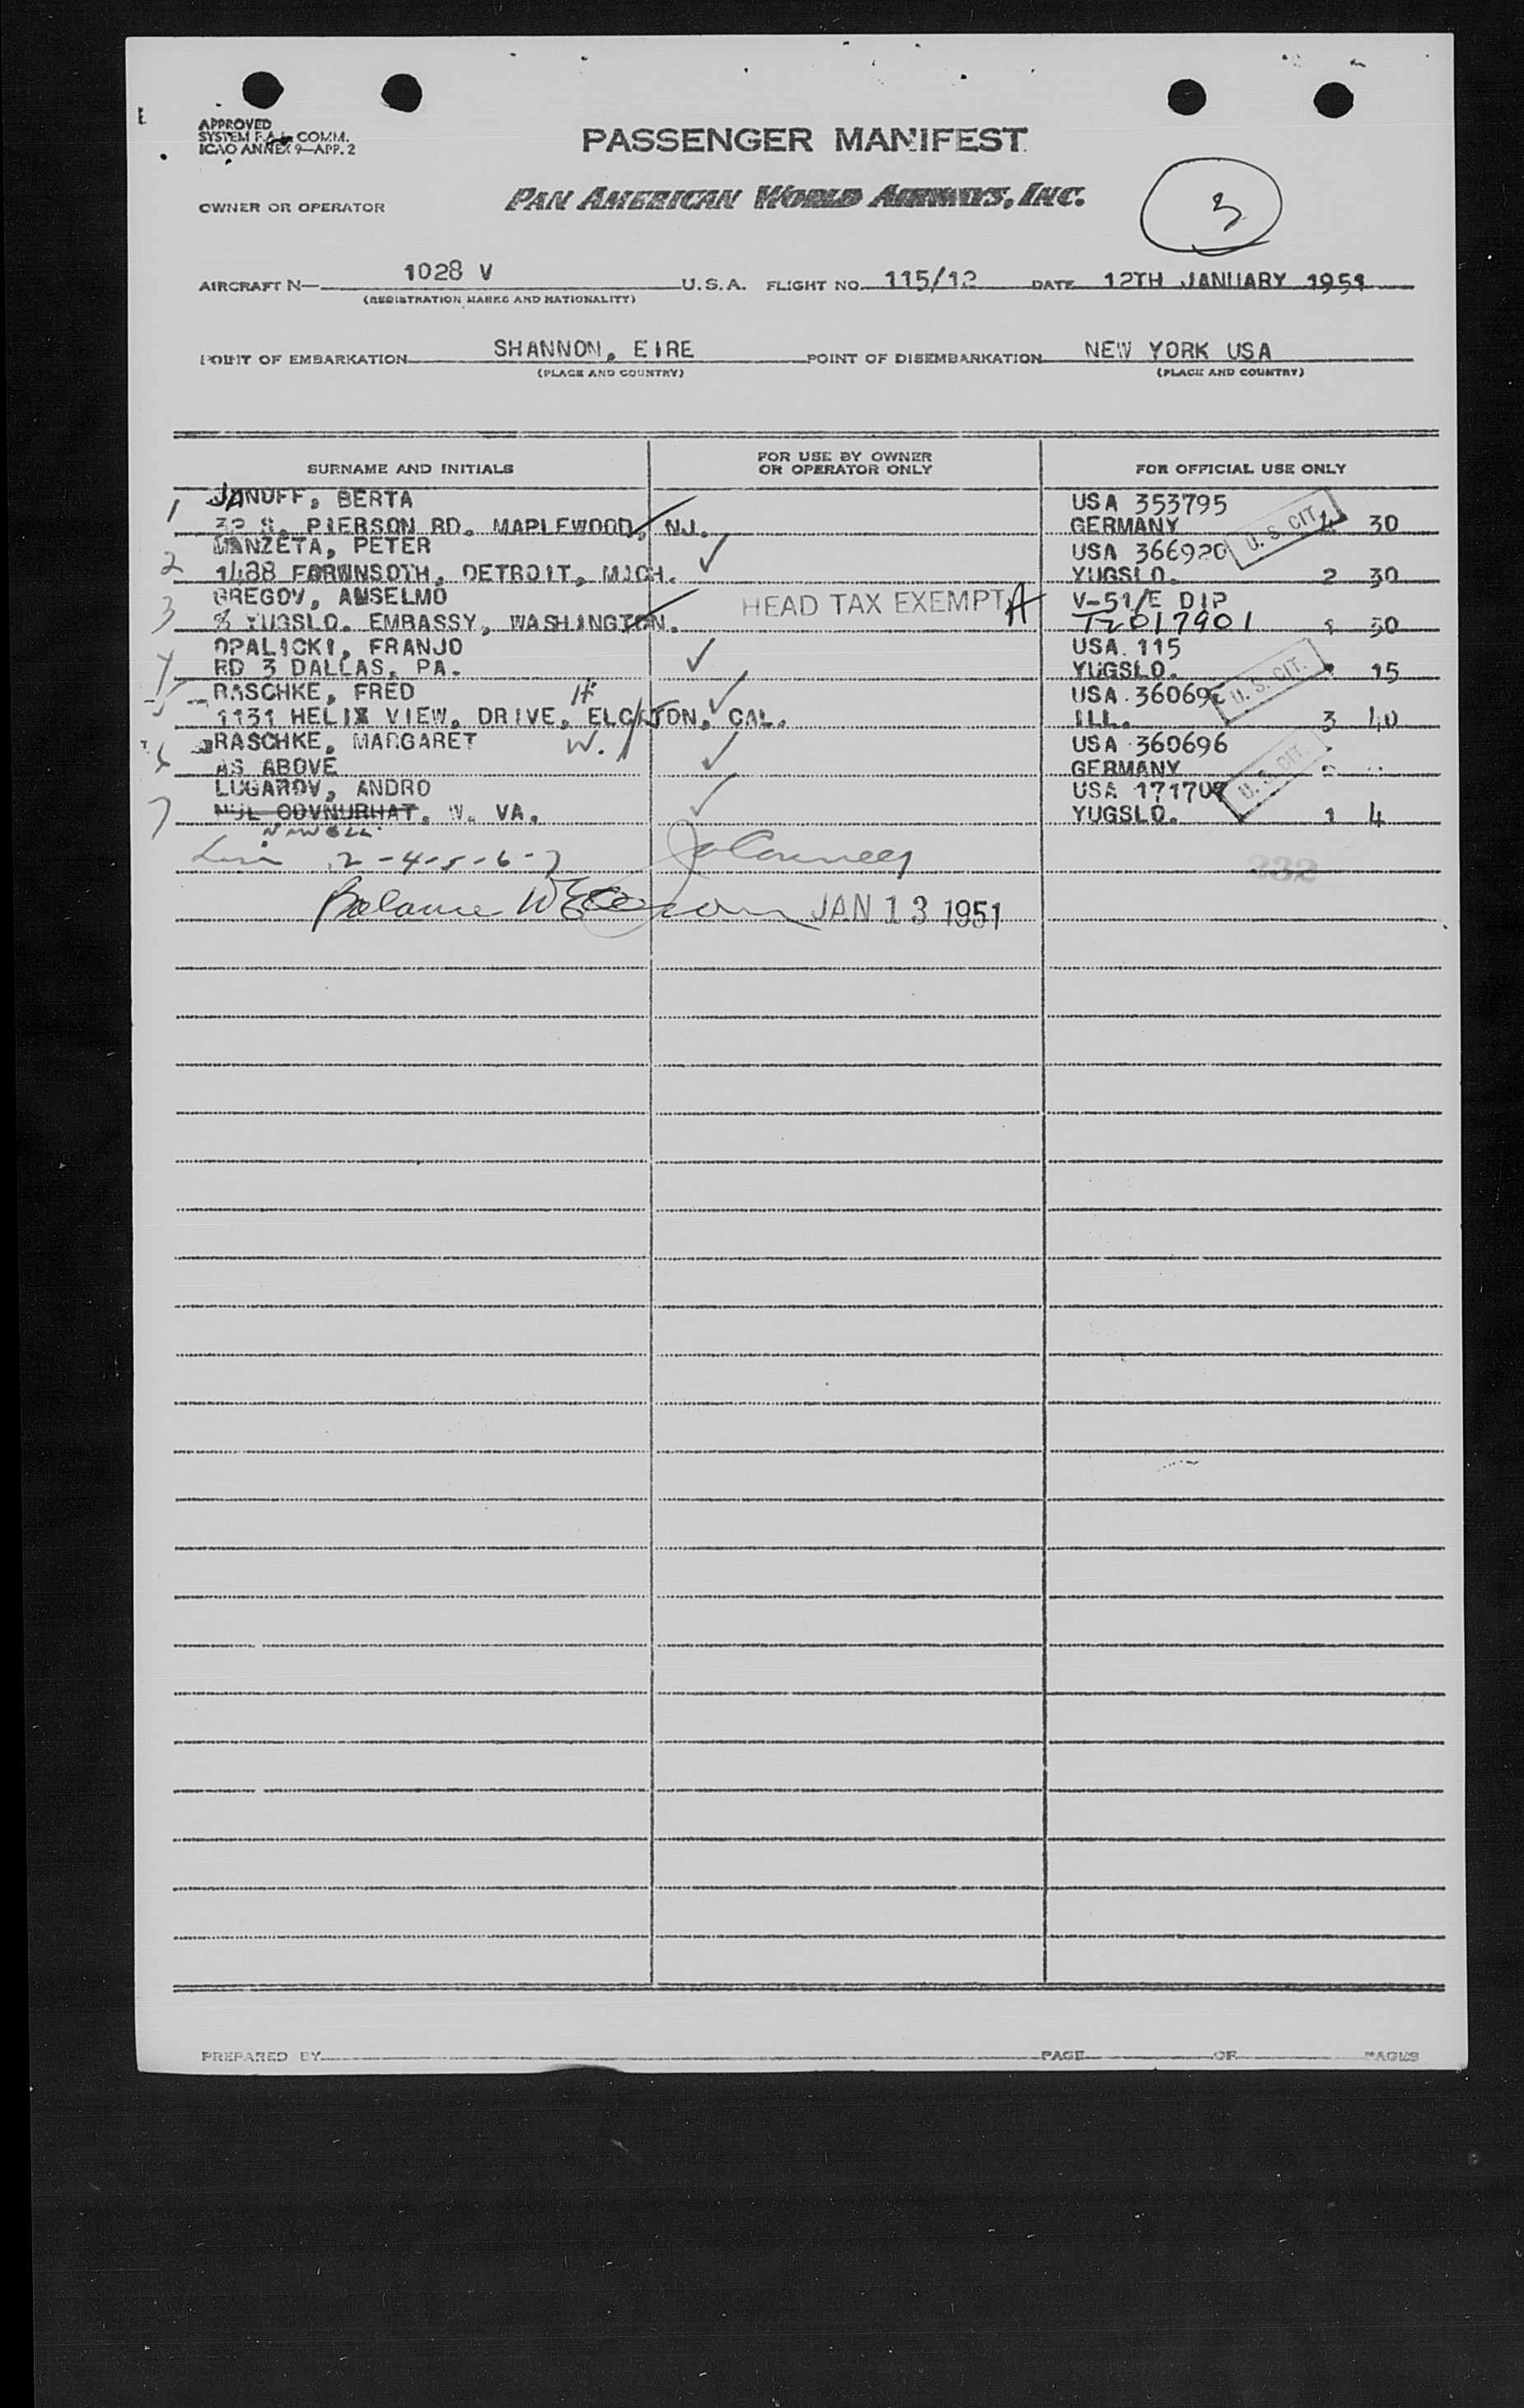 APPROVED
SYSTEM F.A.L. COMM.
ICAO ANNEX 9—APP. 2
PASSENGER MANIFEST
OWNER OR OPERATOR
PAN AMERICAN WORLD AIRWAYS, INC.
3
AIRCRAFT N— 1028 V U.S.A. FLIGHT NO. 115/12 DATE 12TH JANUARY 1951
(REGISTRATION MARKS AND NATIONALITY)
POINT OF EMBARKATION SHANNON, EIRE POINT OF DISEMBARKATION NEW YORK USA
(PLACE AND COUNTRY) (PLACE AND COUNTRY)
SURNAME AND INITIALS FOR USE BY OWNER OR OPERATOR ONLY FOR OFFICIAL USE ONLY
1 JANOFF, BERTA USA 353795
PIERSON RD. MAPLEWOOD, NJ. GERMANY U. S. CIT. 4 30
2 MANZETA, PETER USA 366920
1488 DETROIT, MICH. YUGSLO. 2 30
3 GREGOV, ANSELMO HEAD TAX EXEMPT A V-51/E DIP
% YUGSLO. EMBASSY, WASHINGTON. T2017901 1 30
4 OPALICKI, FRANJO USA. 115
RD 3 DALLAS, PA. YUGSLO. U. S. CIT. 1 15
5 RASCHKE, FRED H USA 360695
1131 HELIX VIEW, DRIVE, CAL. ILL. 3 40
6 RASCHKE, MARGARET W. USA 360696
AS ABOVE GERMANY U. S. CIT.
7 LUGAROV, ANDRO USA 171707
W. VA. YUGSLO. 1 4
2-4-5-6-7
232
Balance JAN 13 1951
PREPARED BY PAGE OF PAGES